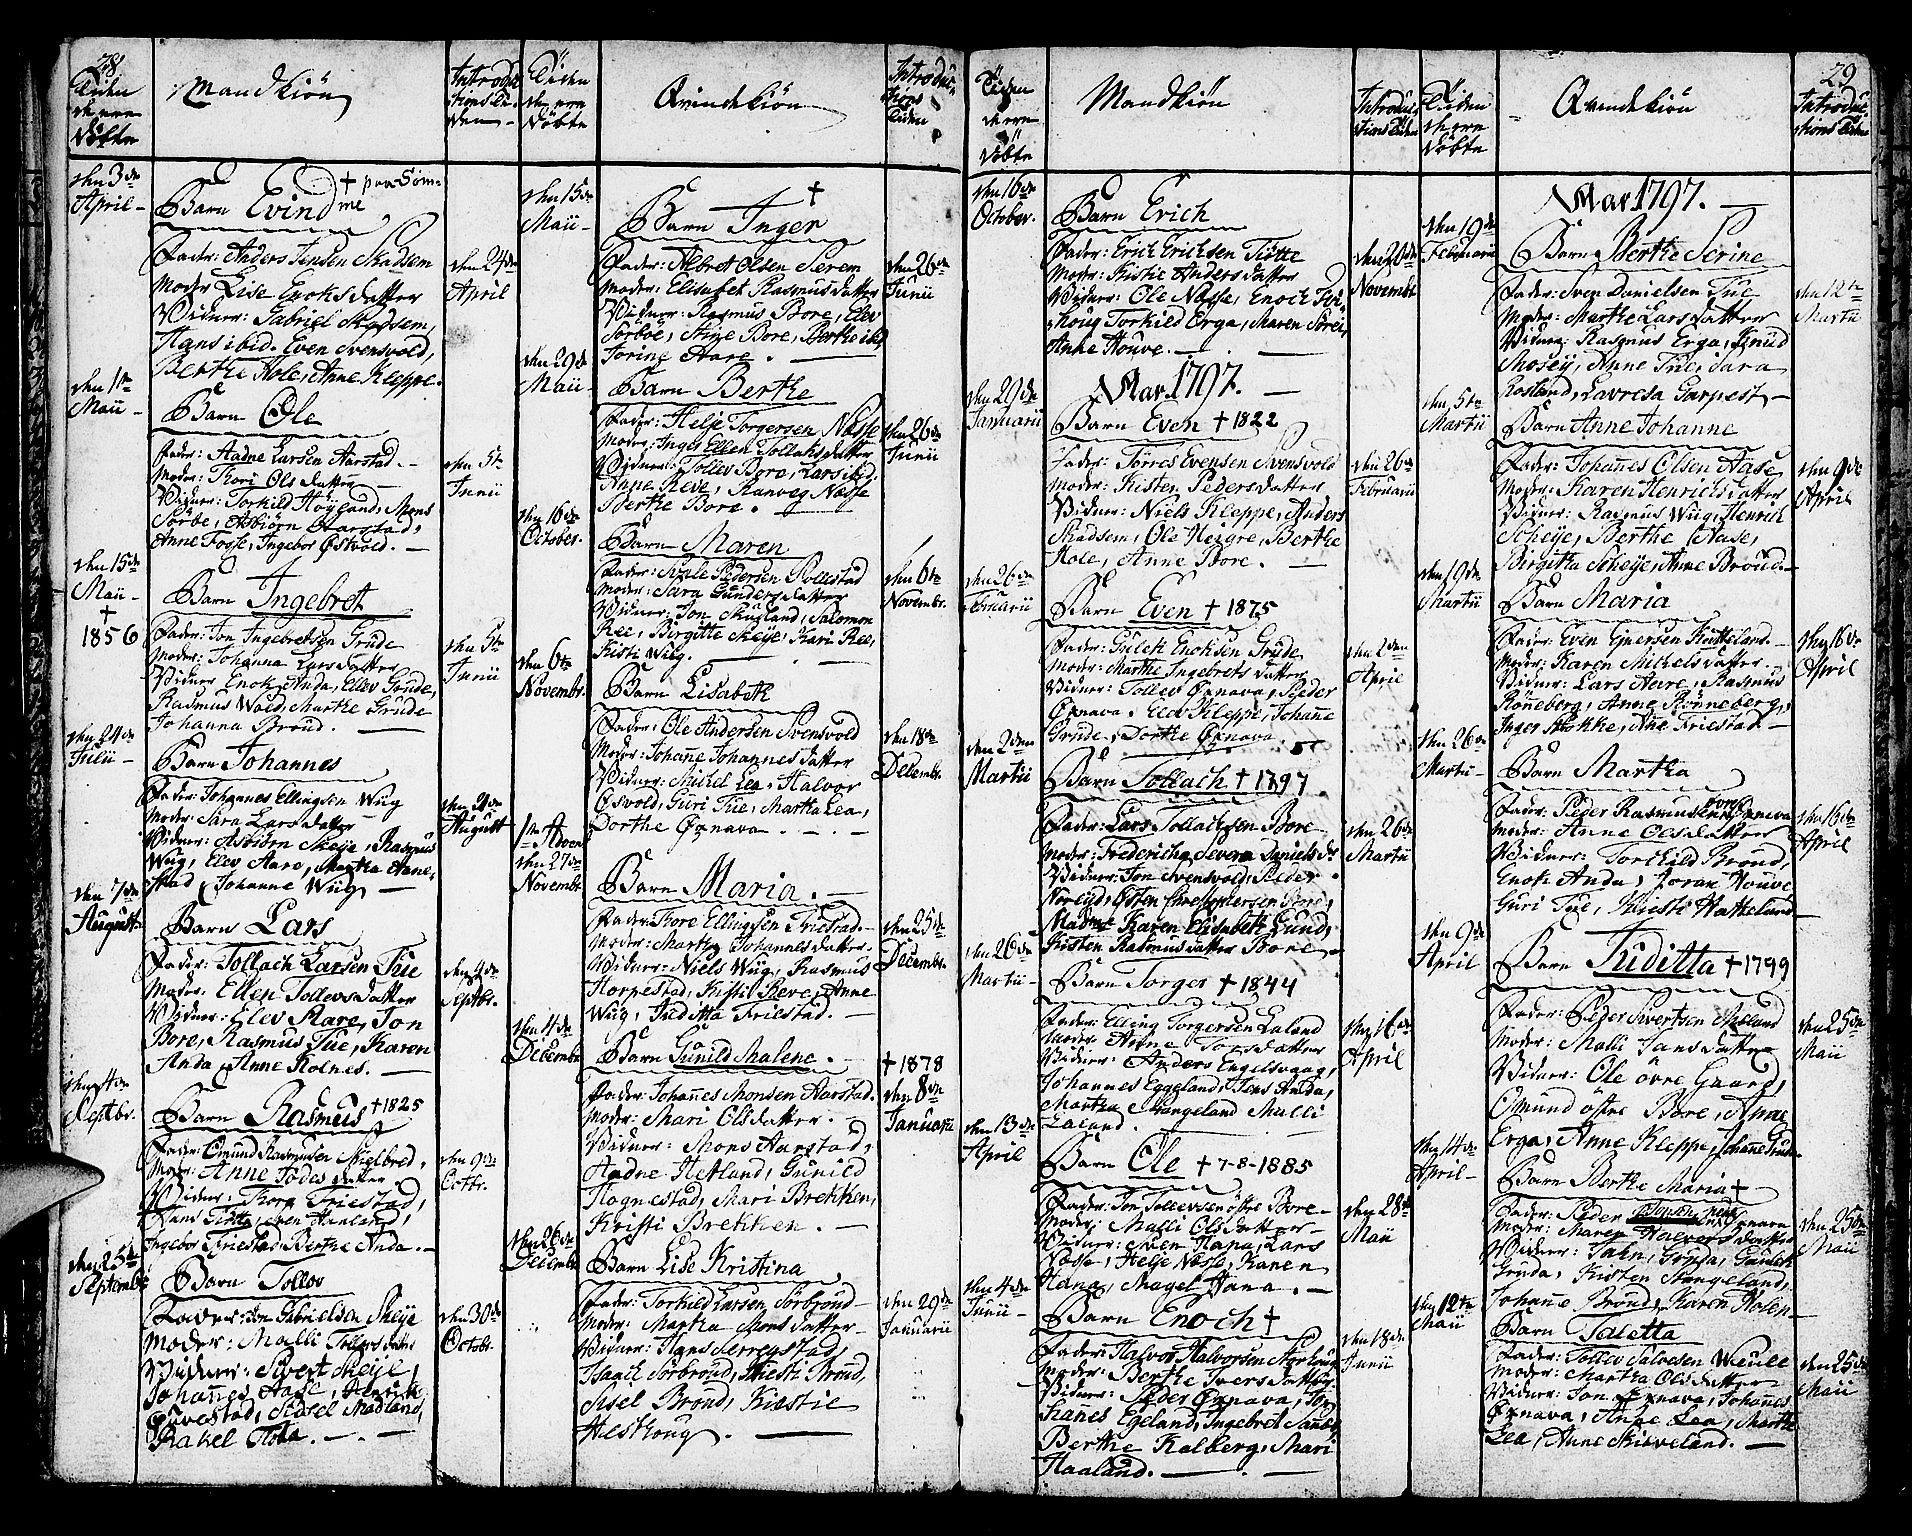 28
Tiden
de ere
döbte
Mandkiön
Introduc
tions Ti
den
den 3de
April
Barn Evind † paa Söm=
me
Fader: Anders Jensen Skadsem
Moder Lise Enoksdatter
Vidner: Gabriel Skadsem,
Hans ibid. Even Svensvold,
Berthe Hole, Anne Kleppe.
den 24de
April
den 1te
Maii
Barn Ole
Fader: Aadne Larsen Aarstad.
Moder: Thori Olsdatter
Vidner: Torkild Höyland, Mons
Sörbö, Asbiörn Aarstad,
Anne Fosse, Ingebor Østvold.
den 5te
Junii
den 15de
Maii
†
1856
Barn Ingebret
Fader: Jon Ingebretsen Grude
Moder: Johanna Larsdatter
Vidner Enok Anda, Ellev Grude,
Rasmus Wold, Marthe Grude
Johanna Bröud.
den 5te
Junii
den 24de
Julii
Barn Johannes
Fader: Johannes Ellingsen Wiig
Moder: Sara Larsdatter
Vidner: Asbiörn Skeije, Rasmus
Wiig, Elev Aare, Martha Anne
stad, Johanne Wiig.
August
den 7de
August
Barn Lars
Fader: Tollach Larsen Tüe
Moder: Ellen Tollevsdatter
Vidner: Elev Aare, Jon
Bore, Rasmus Tüe, Karen
Anda, Anne Kolnes.
den 4de
Septbr.
den 4de
Septbr.
Barn Rasmus † 1825
Fader: Omund Rasmusen Skielbred,
Moder: Anne Jödesdatter
Vidner: Thore Friestad,
Hans Tiötta, Even Haaland,
Ingebor Friestad, Berthe Anda.
den 9de
Octbr.
den 25de
September
Barn Tollev
Fader: Jon Gabrielsen Skeije
Moder: Malli Tollevsdatter
Vidner: Sivert Skeije,
Johannes Aase, Henrik
Gruvestad, Sidsel Madland,
Rakel Tiöta.
den 30de
Octobr.
Tiden
de ere
döbte
Qvindekiön
Introduc
tions
Tiden
den 15de
Maii
Barn Inger †
Fader: Albret Olsen Serem
Moder: Elisabet Rasmusdatter
Vidner: Rasmus Bore, Elev
Sörböe, Stine Bore, Berthe ibid,
Jorine Aare.
den 26de
Junii
den 29de
Maii
Barn Berthe
Fader: Helje Torgersen Næsse
Moder: Inger Ellen Tollaksdatter
Vidner: Tollev Bore, Lars ibid.
Anne Reve, Ranveg Næsse
Berthe Bore.
den 26de
Junii
den 16de
October.
Barn Maren
Fader: Askile Pedersen Rollestad
Moder: Sara Gundersdatter
Vidner: Jon Skugland, Salomon
Ree, Birgitte Skeije, Kari Ree,
Kisti Wiig.
den 6te
Novembr.
den 6te
Novembr.
Barn Lisabeth
Fader: Ole Andersen Svensvold
Moder: Johanne Johannesdatter
Vidner: Mikel Lea, Halvor
Osvold, Guri Tüe, Martha Lea,
Dorthe Øxnava.
den 18de
Decembr.
1te Adven
den 27de
Novembr.
Barn Maria.
Fader: Thore Ellingsen Friestad.
Moder: Martha Johannesdatter.
Vidner: Niels Wiig, Rasmus
Horpestad, Kristi Reve, Anne
Wiig, Juditta Friestad.
den 25de
Decembr.
den 4de
Decembr
Barn Gunild Malene.
† 1878
Fader: Johannes Monsen Aarstad.
Moder: Mari Olsdatter.
Vidner: Mons Aarstad,
Aadne Hetland, Gunild
Hognestad, Mari Brekken,
Kristi Brekken.
den 8de
Januarii
den 26de
Decembr.
Barn Lise Kristina
Fader: Torkild Larsen Sörbröud
Moder: Martha Monsdatter
Vidner: Hans Serrigstad,
Isach Sörbröud, Kiesti Bröud,
Sisel Bröud, Kiestie
Hestkoug.
den 29de
Januarii
Tiden
de ere
döbte
Mandkiön
Introduc
tions Tiden
den 16de
October.
Barn Erich
Fader: Erich Erichsen Tiötte
Moder: Kistie Andersdatter
Vidner: Ole Næsse, Enoch
Torkild Erga, Maren
Anne Houve.
den 20de
Novembr
Aar 1797.
den 29de
Januarii
Barn Even † 1822
Fader: Törres Evensen Svensvold
Moder: Kisten Pedersdatter
Vidner: Niels Kleppe, Anders
Skadsem, Ole Heigre, Berthe
Hole, Anne Bore.
den 26de
Februarii
den 26de
Februarii
Barn Even † 1875
Fader: Enoksen Grude
Moder: Marthe Ingebretsdatter
Vidner: Tollev Øxnava, Peder
Øxnava, Elev Kleppe, Johanne
Grude, Dorthe Øxnava.
den 2den
April
den 2den
Martii
Barn Tollach † 1797.
Fader: Lars Tollachsen Bore
Moder: Fredericha Severa Danielsdr
Vidner: Jon Svensvold, Peder
Østen Christophersen Bore,
Madme Karen Elisabeth Lund,
Kisten Rasmusdatter Bore
den 26de
Martii
den 26de
Martii
Barn Torger † 1844
Fader: Elling Torgersen Laland
Moder: Anne Torsdatter
Vidner: Anders Engelsvaag,
Johannes Eggeland, Jens Anda,
Martha Stangeland Malli
Laland.
den 16de
April
den 13de
April
Barn Ole † 7-8-1885
Fader: Jon Tollevsen östre Bore
Moder: Malli Olsdatter
Vidner: Sven Hana, Lars
Næsse, Helje Næsse, Karen
Hana, Magel Hana.
den 28de
Maii
den 4de
Junii
Barn Enoch †
Fader: Halvor Halvorsen
Moder: Berthe Iversdatter
Vidner: Peder Øxnava, Jo=
hannes Egeland, Ingebret
Berthe Kalberg, Mari
Haaland.
den 18de
Junii
29
Tiden
de ere
döbte
Qvindekiön
Introduc
tions Tiden
Aar 1797.
den 19de
Februarii
Barn Berthe Serine
Fader: Sven Danielsen Tüe
Moder: Marthe Larsdatter
Vidner Rasmus Erga, Knud
Mosey, Anne Tüe, Sara
Rosland, Lavresa Garpest
den 12te
Martii
den 5te
Martii
Barn Anne Johanne
Fader: Johannes Olsen Aase
Moder: Karen Henrichsdatter
Vidner: Rasmus Wiig, Henrich
Scheije, Berthe Aase,
Birgitta Scheije, Anne Bröud.
den 9de
April
den 19de
Martii
Barn Maria
Fader: Even Gunersen Hatteland.
Moder: Karen Mikelsdatter
Vidner: Lars Aare, Rasmus
Röneberg, Anne Rönneberg,
Inger Hokke, Ane Friestad
den 16de
April
den 26de
Martii
Barn Martha
Fader: Peder Rasmussen Øxnava
Moder: Anne Olsdatter
Vidner: Torchild Bröud,
Enok Anda, Joran Houve
Guri Tüe, Kiesti Hatteland
den 16de
April
den 9de
April
Barn Juditta † 1799
Fader: Peder Sivertsen
Moder: Malli Jansdatter
Vidner: Ole övre Gaard,
Omund östre Bore, Anne
Erga, Anne Kleppe, Johanne Grude
den 25de
Maii
den 14de
April
Barn Berthe Maria †
Fader: Peder Øxnava
Moder: Maren Halvorsdatter
Vidner: Jahn Gulich
Gruda, Kisten Stangeland,
Johanne Bröud, Karen Holen
den 25de
Maii
den 12te
Maii
Barn Taletta
Fader: Tollev Salvesen Weule
Moder: Martha Olsdatter
Vidner: Jon Øxnava, Johannes
Øxnava, Anne Lea, Marthe
Lea, Anne Skieveland.
den 25de
Maii